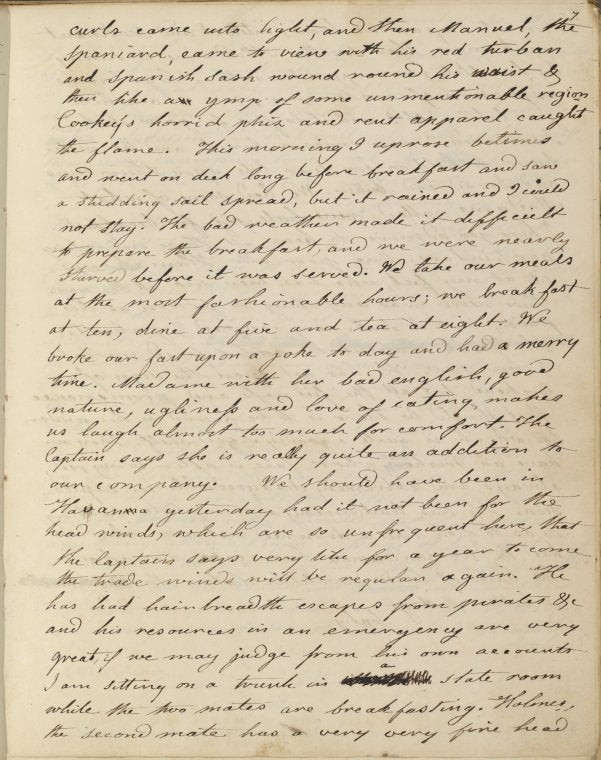 7
curls came into light, and then Manuel, the
Spaniard, came to view with his red turban
and Spanish sash wound round his waist &
then like an ymp of some unmentionable region
Cookey's horrid phiz and rent apparel caught
the flame. This morning I uprose betimes
and went on deck long before breakfast and saw
a studding sail spread, but it rained and I could
not stay. The bad weather made it difficult
to prepare the breakfast, and we were nearly
starved before it was served. We take our meals
at the most fashionable hours; we breakfast
at ten, dine at five and tea at eight. We
broke our fast upon a joke to day and had a merry
time. Madame with her bad english, good
nature, ugliness and love of eating makes
us laugh almost too much for comfort. The
Captain says she is really quite an addition to
our company. We should have been in
Havanna yesterday had it not been for the
head winds, which are so unfrequent here, that
the Captain says very like for a year to come
the trade winds will be regular again. He
has had hairbreadth escapes from pirates &c
and his resources in an emergency are very
great, if we may judge from his own accounts
I am sitting on a trunk in a state room
while the two mates are breakfasting. Holmes,
the second mate has a very very fine head